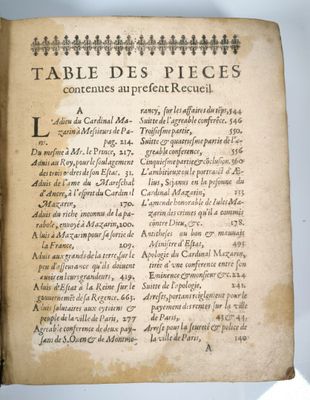 TABLE DES PIECES
contenues au present Recueil.
A
L'Adieu du Cardinal Ma-
zarin à Messieurs de Pa-
214.
Du mesme à Mr. le Prince, 217.
Aduis au Roy, pour le soulagement
des trois ordres de son Estat. 31
Aduis de l'ame du Mareschal
d'Ancre, à l'esprit du Cardinal
Mazarin, 170.
Aduis du riche inconnu de la pa-
rabole, envoyé à Mazarin, 200.
Aduis à Mazarin pour sa sortie de
la France, 209.
Aduis aux grands de la terre, sur le
peu d'asseurance qu'ils doivent
auoir en leurs grandeurs, 419.
Aduis d'Estat à la Reine sur le
gouuernemēt de sa Regence. 663.
Aduis salutaires aux cytoiens &
peuple de la ville de Paris, 277
Agreable conference de deux pay-
sans de S. Ouen & de Montmo-
rancy, sur les affaires du tēps, 544
Suitte de l'agreable conferēce. 546
Troisiesme partie, 550.
Suitte & quatriesme partie de l'a-
greable conference, 556
Cinquiesme partie & cōclusion. 560
L'ambitieux ou le portraict d'Æ-
lius, Sejanus en la personne du
Cardinal Mazarin, 153.
L'amende honorable de Jules Ma-
zarin des crimes qu'il a commis
contre Dieu, &c. 178.
Antitheses au bon & mauuais
Ministre d'Estat, 495
Apologie du Cardinal Mazarin,
tirée d'une conference entre son
Eminence & monsieur & c. 224
Suitte de l'apologie, 241.
Arrests, portant reiglement pour le
payement des rentes sur la ville
de Paris, 43 & 44.
Arrest pour la seureté & police de
la ville de Paris, 140
A